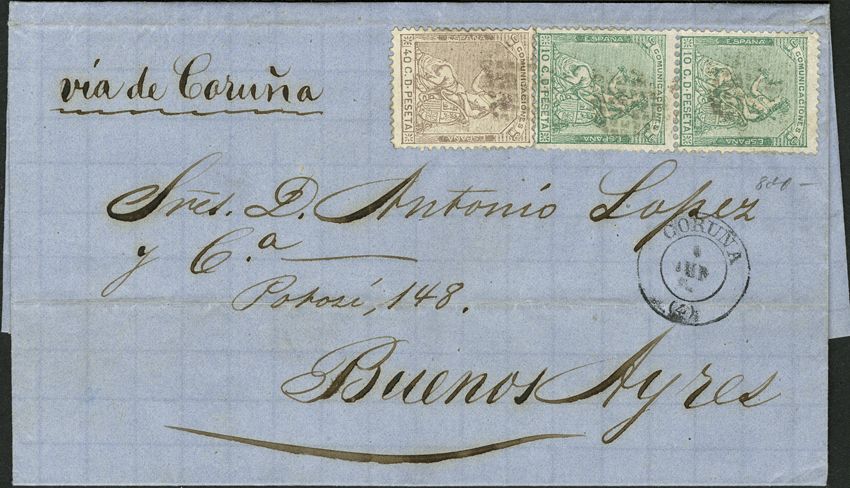 vía de Coruña
ESPAÑA
COMUNICACIONES
40 C. D. PESETA
ESPAÑA
ESPAÑA
COMUNICACIONES
10 C. D. PESETA
ESPAÑA
ESPAÑA
COMUNICACIONES
10 C. D. PESETA
ESPAÑA
Sres. D. Antonio Lopez
y C.a
Potosí, 148.
Buenos Ayres
CORUÑA
(2)